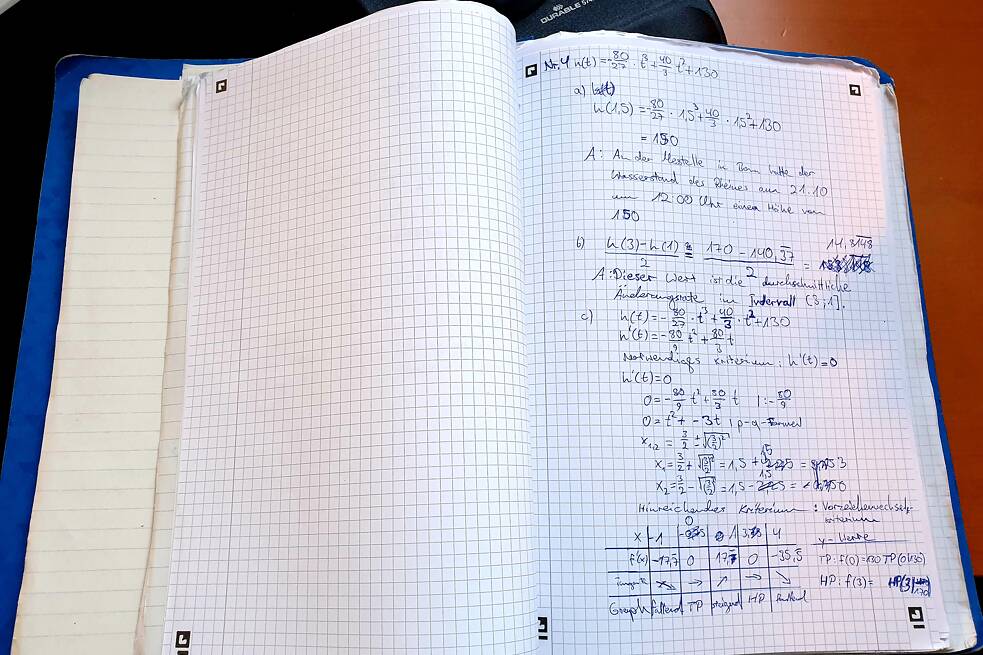 DURABLE
Nr. 4 h(t) = -80/27 · t³ + 40/3 t² + 130
a)
h(1,5) = -80/27 · 1,5³ + 40/3 · 1,5² + 130
= 150
A: An der Messtelle in Bonn hatte der
Wasserstand des Rheines am 21.10
um 12:00 Uhr einen Höhe von
150
b) h(3)-h(1)/2 = 170 - 140,37/2 = 14,8148
A: Dieser Wert ist die durchschnittliche
Änderungsrate im Intervall [3;1].
c) h(t) = -80/27 · t³ + 40/3 · t² + 130
h'(t) = -80/9 t² + 80/3 t
Notwendiges Kriterium: h'(t) = 0
h'(t) = 0
0 = -80/9 t² + 80/3 t |: -80/9
0 = t² + -3t | p-q-Formel
x1,2 = 3/2 ± √(3/2)²
x1 = 3/2 + √(3/2)² = 1,5 + 1,5 = 3
x2 = 3/2 - √(3/2)² = 1,5 - 1,5 = 0
Hinreichendes Kriterium: Vorzeichenwechsel-
kriterium
x | -1 | 0 | 1 | 3 | 4
f'(x) | -17,7 | 0 | 17,7 | 0 | -35,5
↘ | → | ↗ | → | ↘
Graph | fallend | TP | steigend | HP | fallend
y-Werte
TP: f(0) = 130 TP(0|130)
HP: f(3) = HP(3|170)